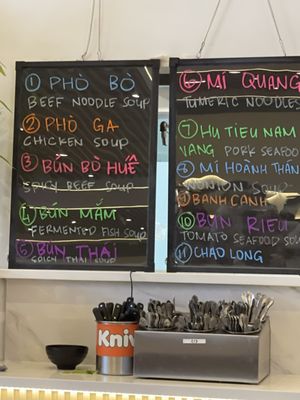 ① PHÒ BÒ
BEEF NOODLE SOUP
② PHÒ GA
CHICKEN SOUP
③ BÚN BÒ HUẾ
SPICY BEEF SOUP
④ BÚN MẮM
FERMENTED FISH SOUP
⑤ BÚN THÁI
SPICY THAI SOUP
⑥ MÌ QUANG
TUMERIC NOODLES
⑦ HU TIEU NAM
VANG PORK SEAFOO
⑧ MÌ HOÀNH THÁN
WONTON SOUP
⑨ BANH CANH
⑩ BÚN RIEU
TOMATO SEAFOOD SOUP
⑪ CHAO LONG
Kniv